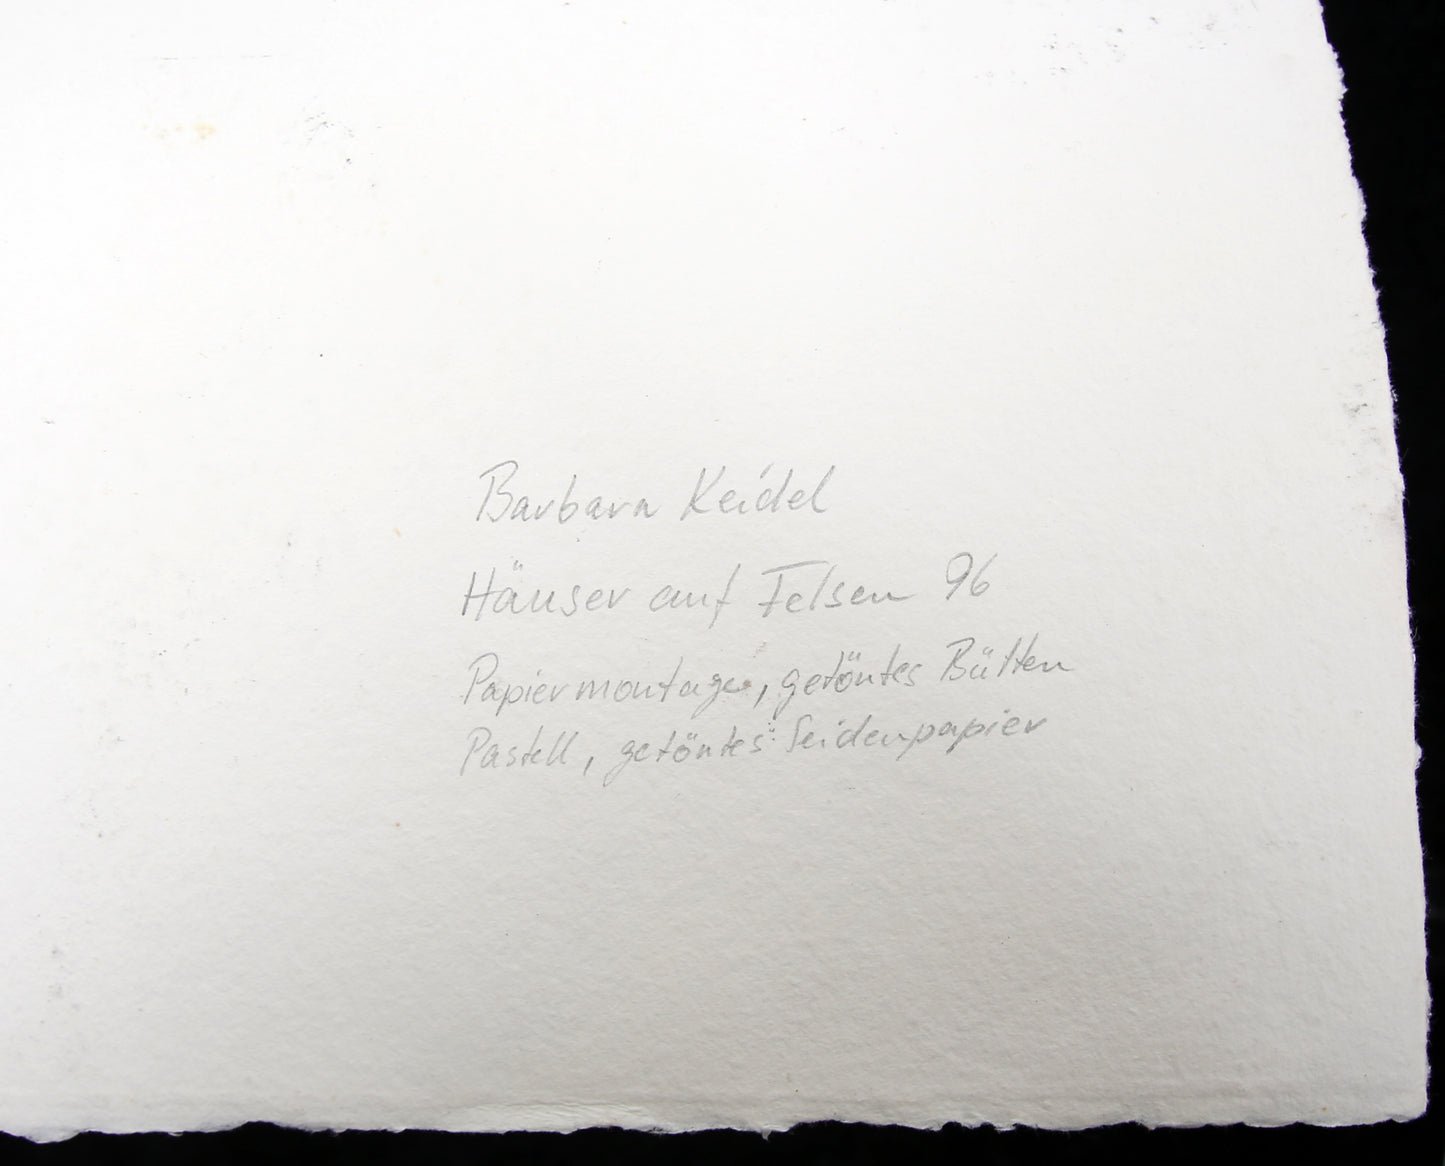 Barbara Keidel
Häuser auf Felsen 96
Papiermontage, getöntes Bütten
Pastell, getöntes Seidenpapier